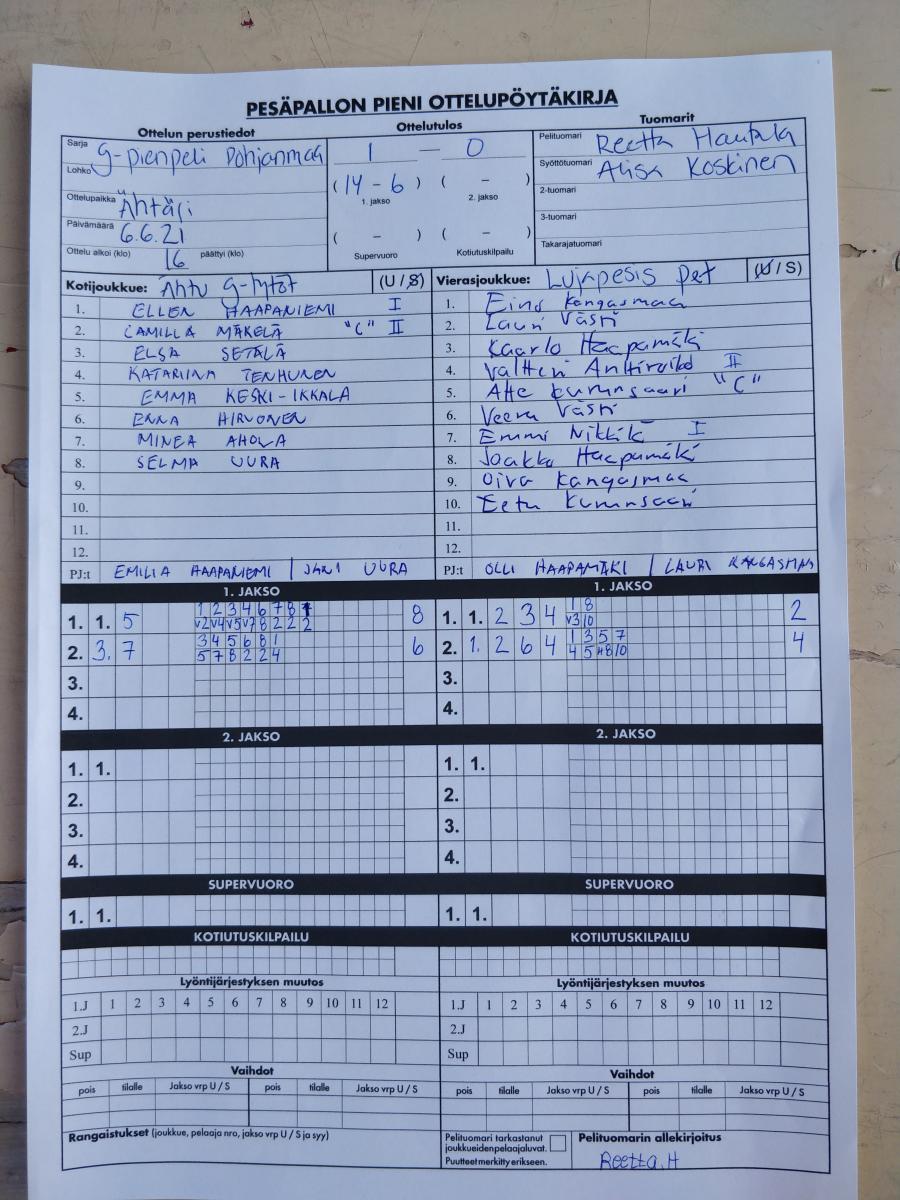 PESÄPALLON PIENI OTTELUPÖYTÄKIRJA
Ottelun perustiedot
Ottelutulos
Tuomarit
Sarja g-pienpeli Pohjanmaa
1 — 0
Pelituomari Reetta Hautala
Lohko
(14 - 6) ( - )
Syöttötuomari Alisa Koskinen
1. jakso 2. jakso
Ottelupaikka Ähtäri
2-tuomari
Päivämäärä 6.6.21
3-tuomari
( - ) ( - )
Ottelu alkoi (klo) 16 päättyi (klo)
Supervuoro Kotiutuskilpailu
Takarajatuomari
Kotijoukkue: Ähtu g-tytöt (U / S)
1. ELLEN HAAPANIEMI I
2. CAMILLA MÄKELÄ "C" II
3. ELSA SETÄLÄ
4. KATARIINA TENHUNEN
5. EMMA KESKI-IKKALA
6. ENNA HIRVONEN
7. MINEA AHOLA
8. SELMA UURA
9.
10.
11.
12.
PJ:t EMILIA HAAPANIEMI / JANI UURA
Vierasjoukkue: Lujapesis Pet (U / S)
1. Eino Kangasmaa
2. Lauri Västi
3. Kaarlo Haapamäki
4. Valtteri Anttiroiko II
5. Atte Kurunsaari "C"
6. Veera Västi
7. Emmi Nikkilä I
8. Jaakko Haapamäki
9. Oiva Kangasmaa
10. Eetu Kurunsaari
11.
12.
PJ:t OLLI HAAPAMÄKI / LAURI KANGASMAA
1. JAKSO
1. 1. 5 1 2 3 4 6 7 8 1 8
v2 v4 v5 v7 8 2 2 2
2. 3. 7 3 4 5 6 8 1 6
5 7 8 2 2 4
3.
4.
1. JAKSO
1. 1. 2 3 4 1 8 2
v3 10
2. 1. 2 6 4 1 3 5 7 4
4 5 8 10
3.
4.
2. JAKSO
1. 1.
2.
3.
4.
2. JAKSO
1. 1.
2.
3.
4.
SUPERVUORO
1. 1.
SUPERVUORO
1. 1.
KOTIUTUSKILPAILU
KOTIUTUSKILPAILU
Lyöntijärjestyksen muutos
1.J 1 2 3 4 5 6 7 8 9 10 11 12
2.J
Sup
Lyöntijärjestyksen muutos
1.J 1 2 3 4 5 6 7 8 9 10 11 12
2.J
Sup
Vaihdot
pois tilalle Jakso vrp U / S pois tilalle Jakso vrp U / S
Vaihdot
pois tilalle Jakso vrp U / S pois tilalle Jakso vrp U / S
Rangaistukset (joukkue, pelaaja nro, jakso vrp U / S ja syy)
Pelituomari tarkastanut
joukkueidenpelaajaluvat.
Puutteet merkitty erikseen.
Pelituomarin allekirjoitus
Reetta.H